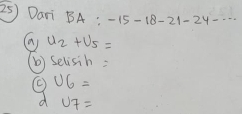 25) Dari BA : -15 -18 -21 -24 - ...
a) U2 + U5 =
b) Selisih =
c) U6 =
d U7 =